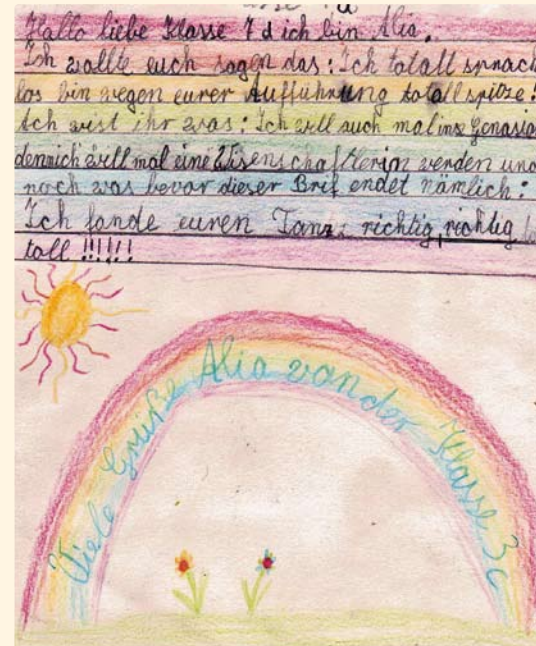 Hallo liebe Klasse 7d ich bin Alia.
Ich wollte euch sagen das: Ich totall sprach
los bin wegen eurer Aufführung totall spitze!
Ach wist ihr was: Ich will auch mal ins Genasiu
dennich will mal eine Wisenschaftlerin werden und
noch was bevor dieser Brif endet nämlich:
Ich fande euren Tanz richtig, richtig to
tall !!!!!!
Viele Grüße Alia von der Klasse 3c